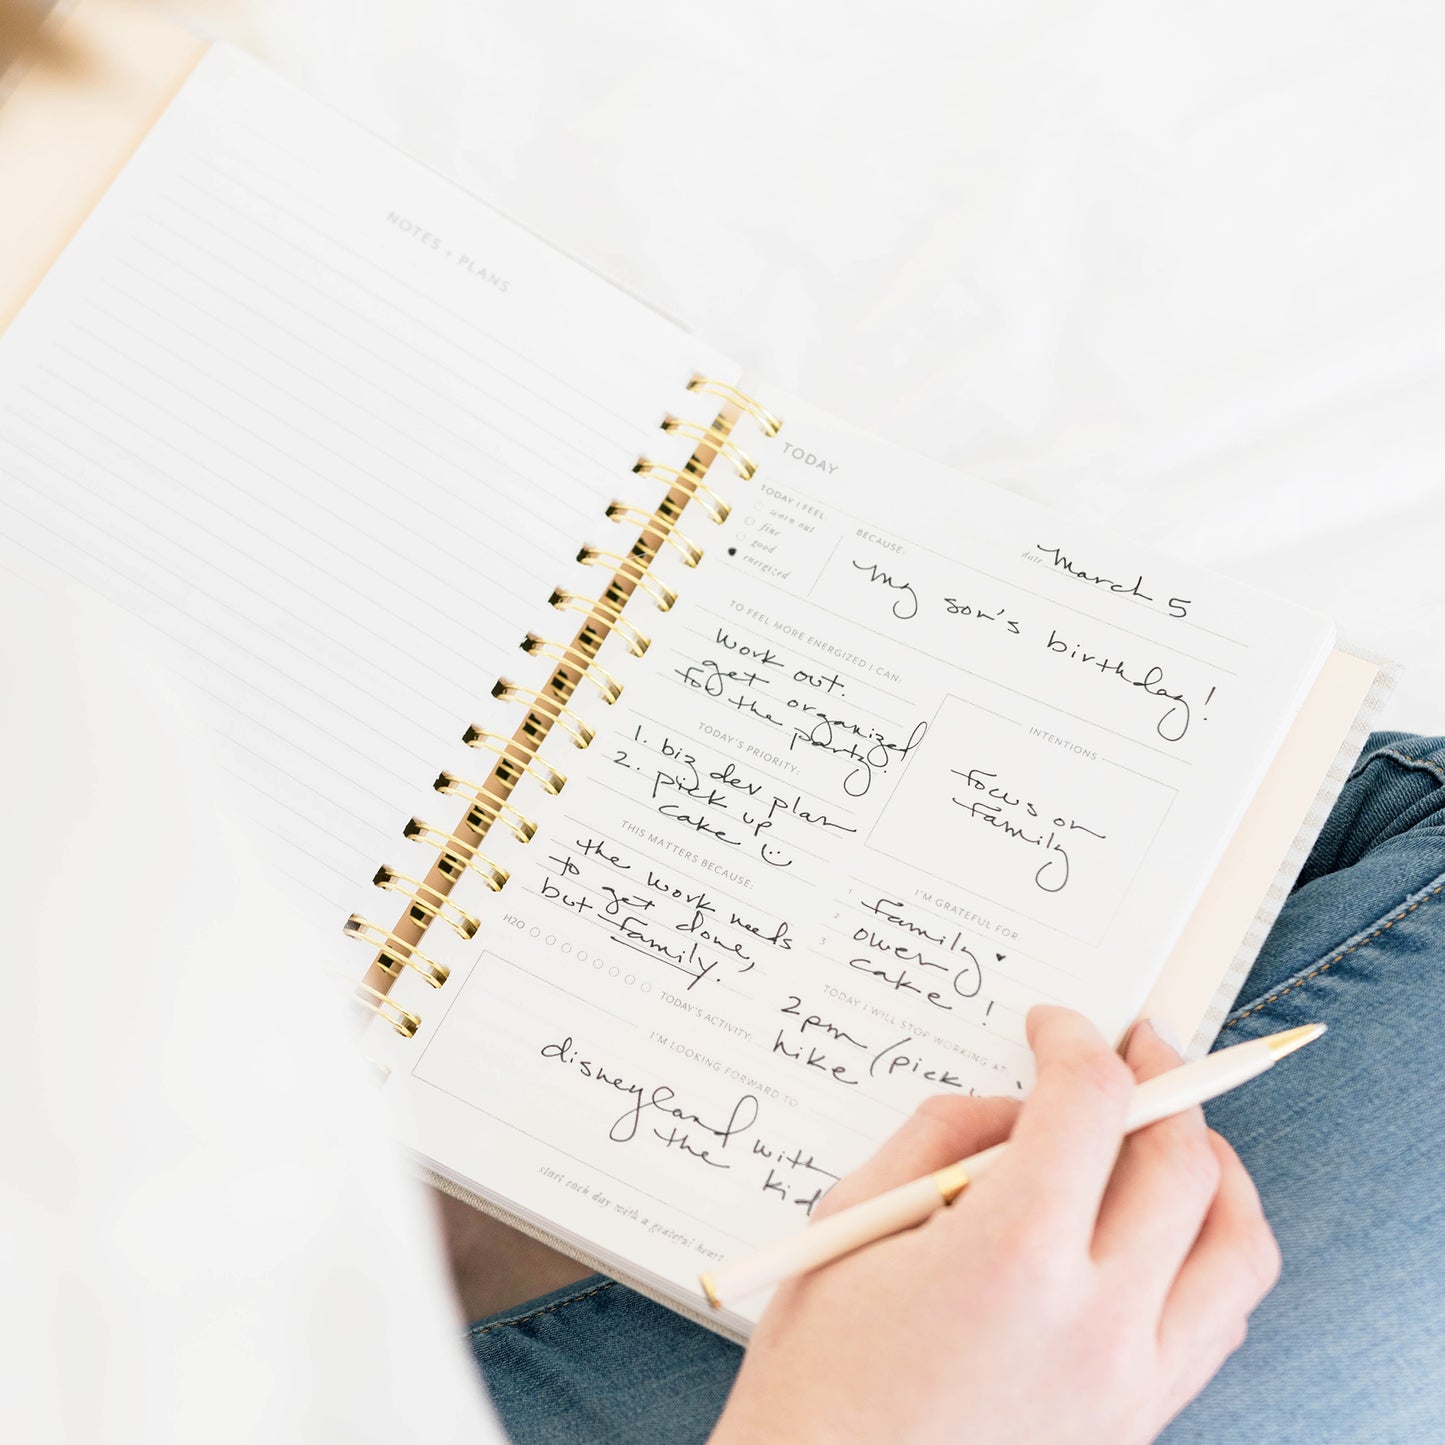 NOTES + PLANS
TODAY
date March 5
TODAY I FEEL:
worn out
fine
good
energized
BECAUSE:
My son's birthday!
TO FEEL MORE ENERGIZED I CAN:
work out.
get organized
for the party.
TODAY'S PRIORITY:
1. biz dev plan
2. pick up
cake
THIS MATTERS BECAUSE:
the work needs
to get done,
but family.
H2O
INTENTIONS
focus on
family
I'M GRATEFUL FOR
1 family
2 Owen
3 cake!
TODAY I WILL STOP WORKING AT:
2pm (pick
TODAY'S ACTIVITY:
hike
I'M LOOKING FORWARD TO
disneyland with
the kid
start each day with a grateful heart.